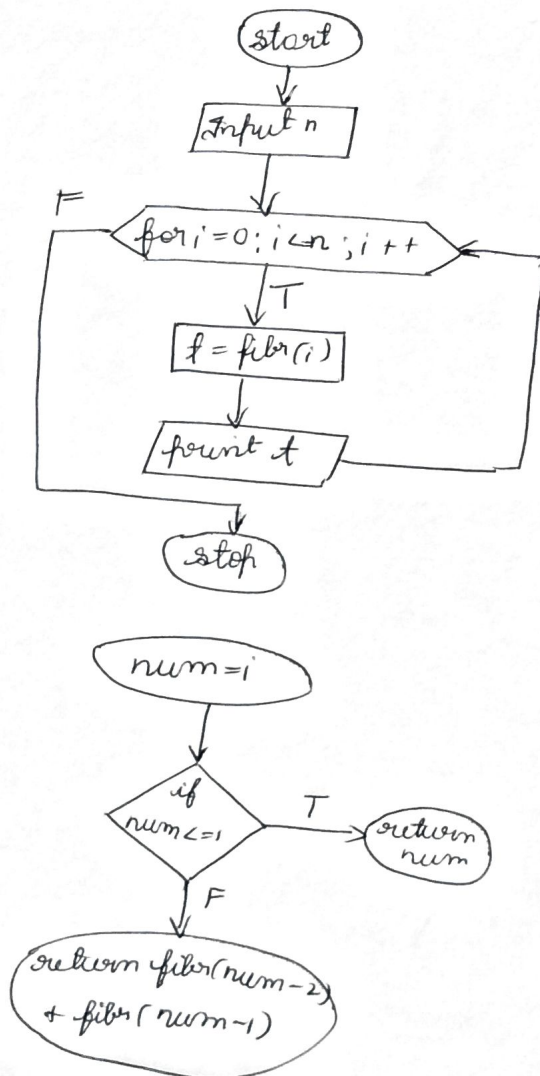 start
Input n
F
for i=0; i<n; i++
T
f = fibr(i)
print t
stop
num=i
if
num<=1
T
return
num
F
return fibr(num-2)
+ fibr(num-1)